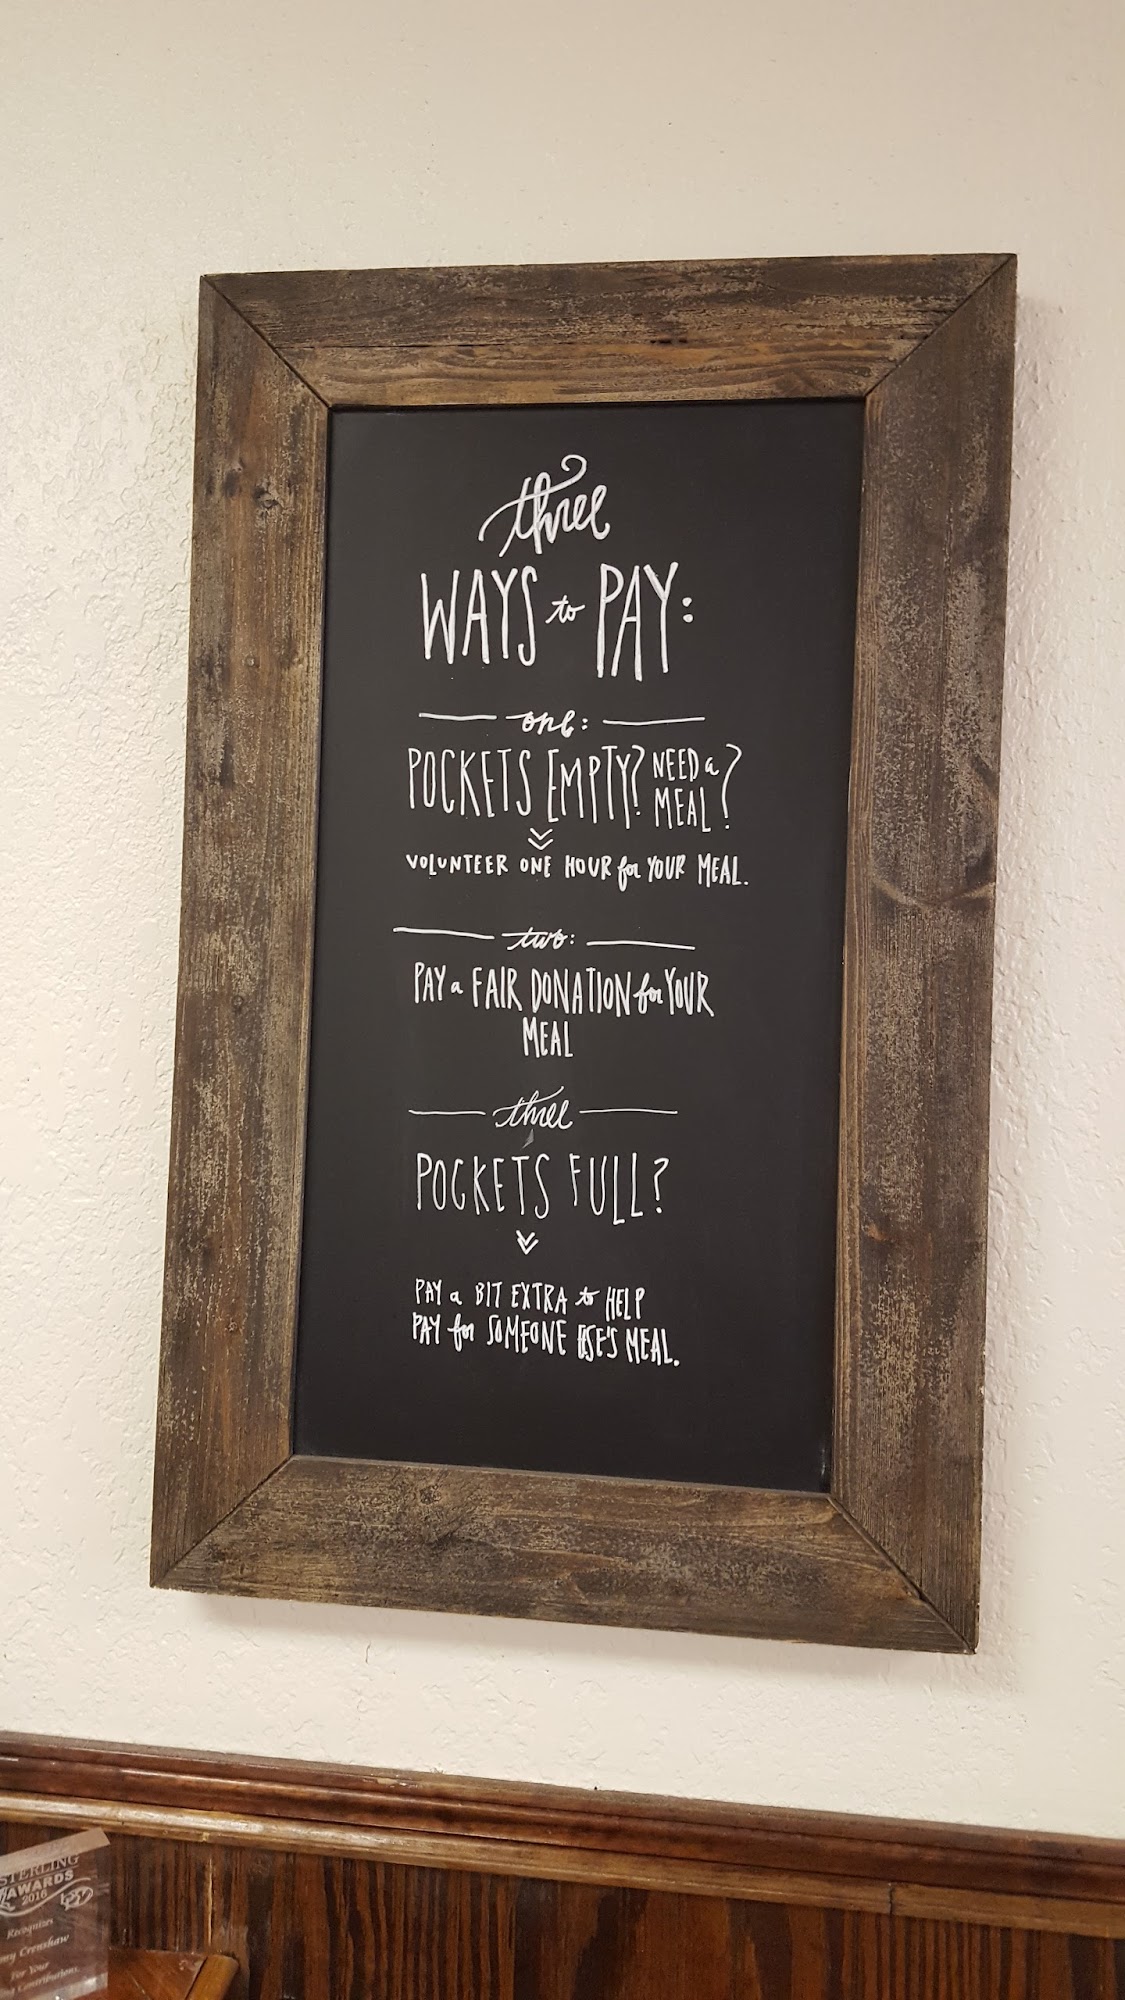 three
WAYS to PAY:
one:
POCKETS EMPTY? NEED a MEAL?
VOLUNTEER ONE HOUR for YOUR MEAL.
two:
PAY a FAIR DONATION for YOUR
MEAL
three
POCKETS FULL?
PAY a BIT EXTRA to HELP
PAY for SOMEONE ElSE'S MEAL.
STERLING
AWARDS
2016
Recognizes
Crenshaw
For Your
Contributions.